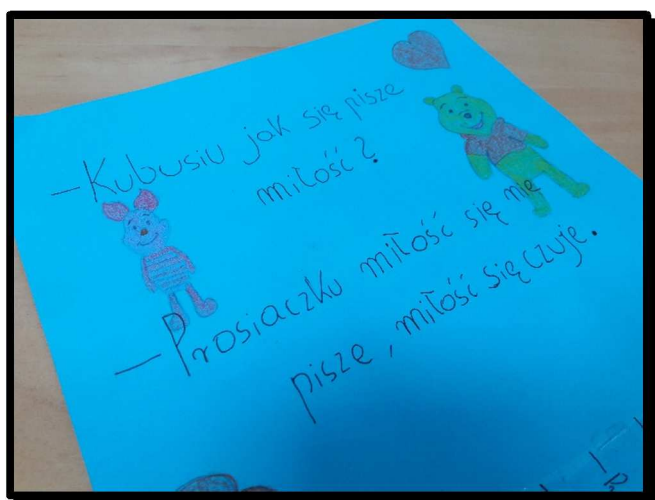 —Kubusiu jak się pisze
miłość?
—Prosiaczku miłość się nie
pisze, miłość się czuje.